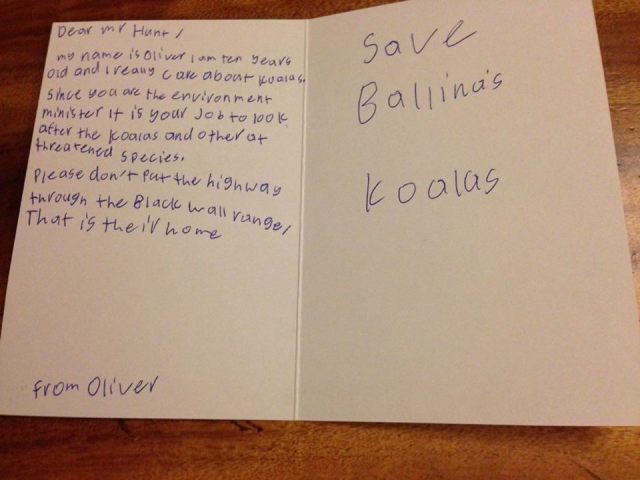 Dear mr Hunt,
my name is Oliver I am ten years
old and I really care about koalas.
Since you are the environment
minister it is your Job to look
after the koalas and other at
threatened species.
Please don't put the highway
through the Black wall range,
That is their home
from Oliver
Save
Ballina's
Koalas